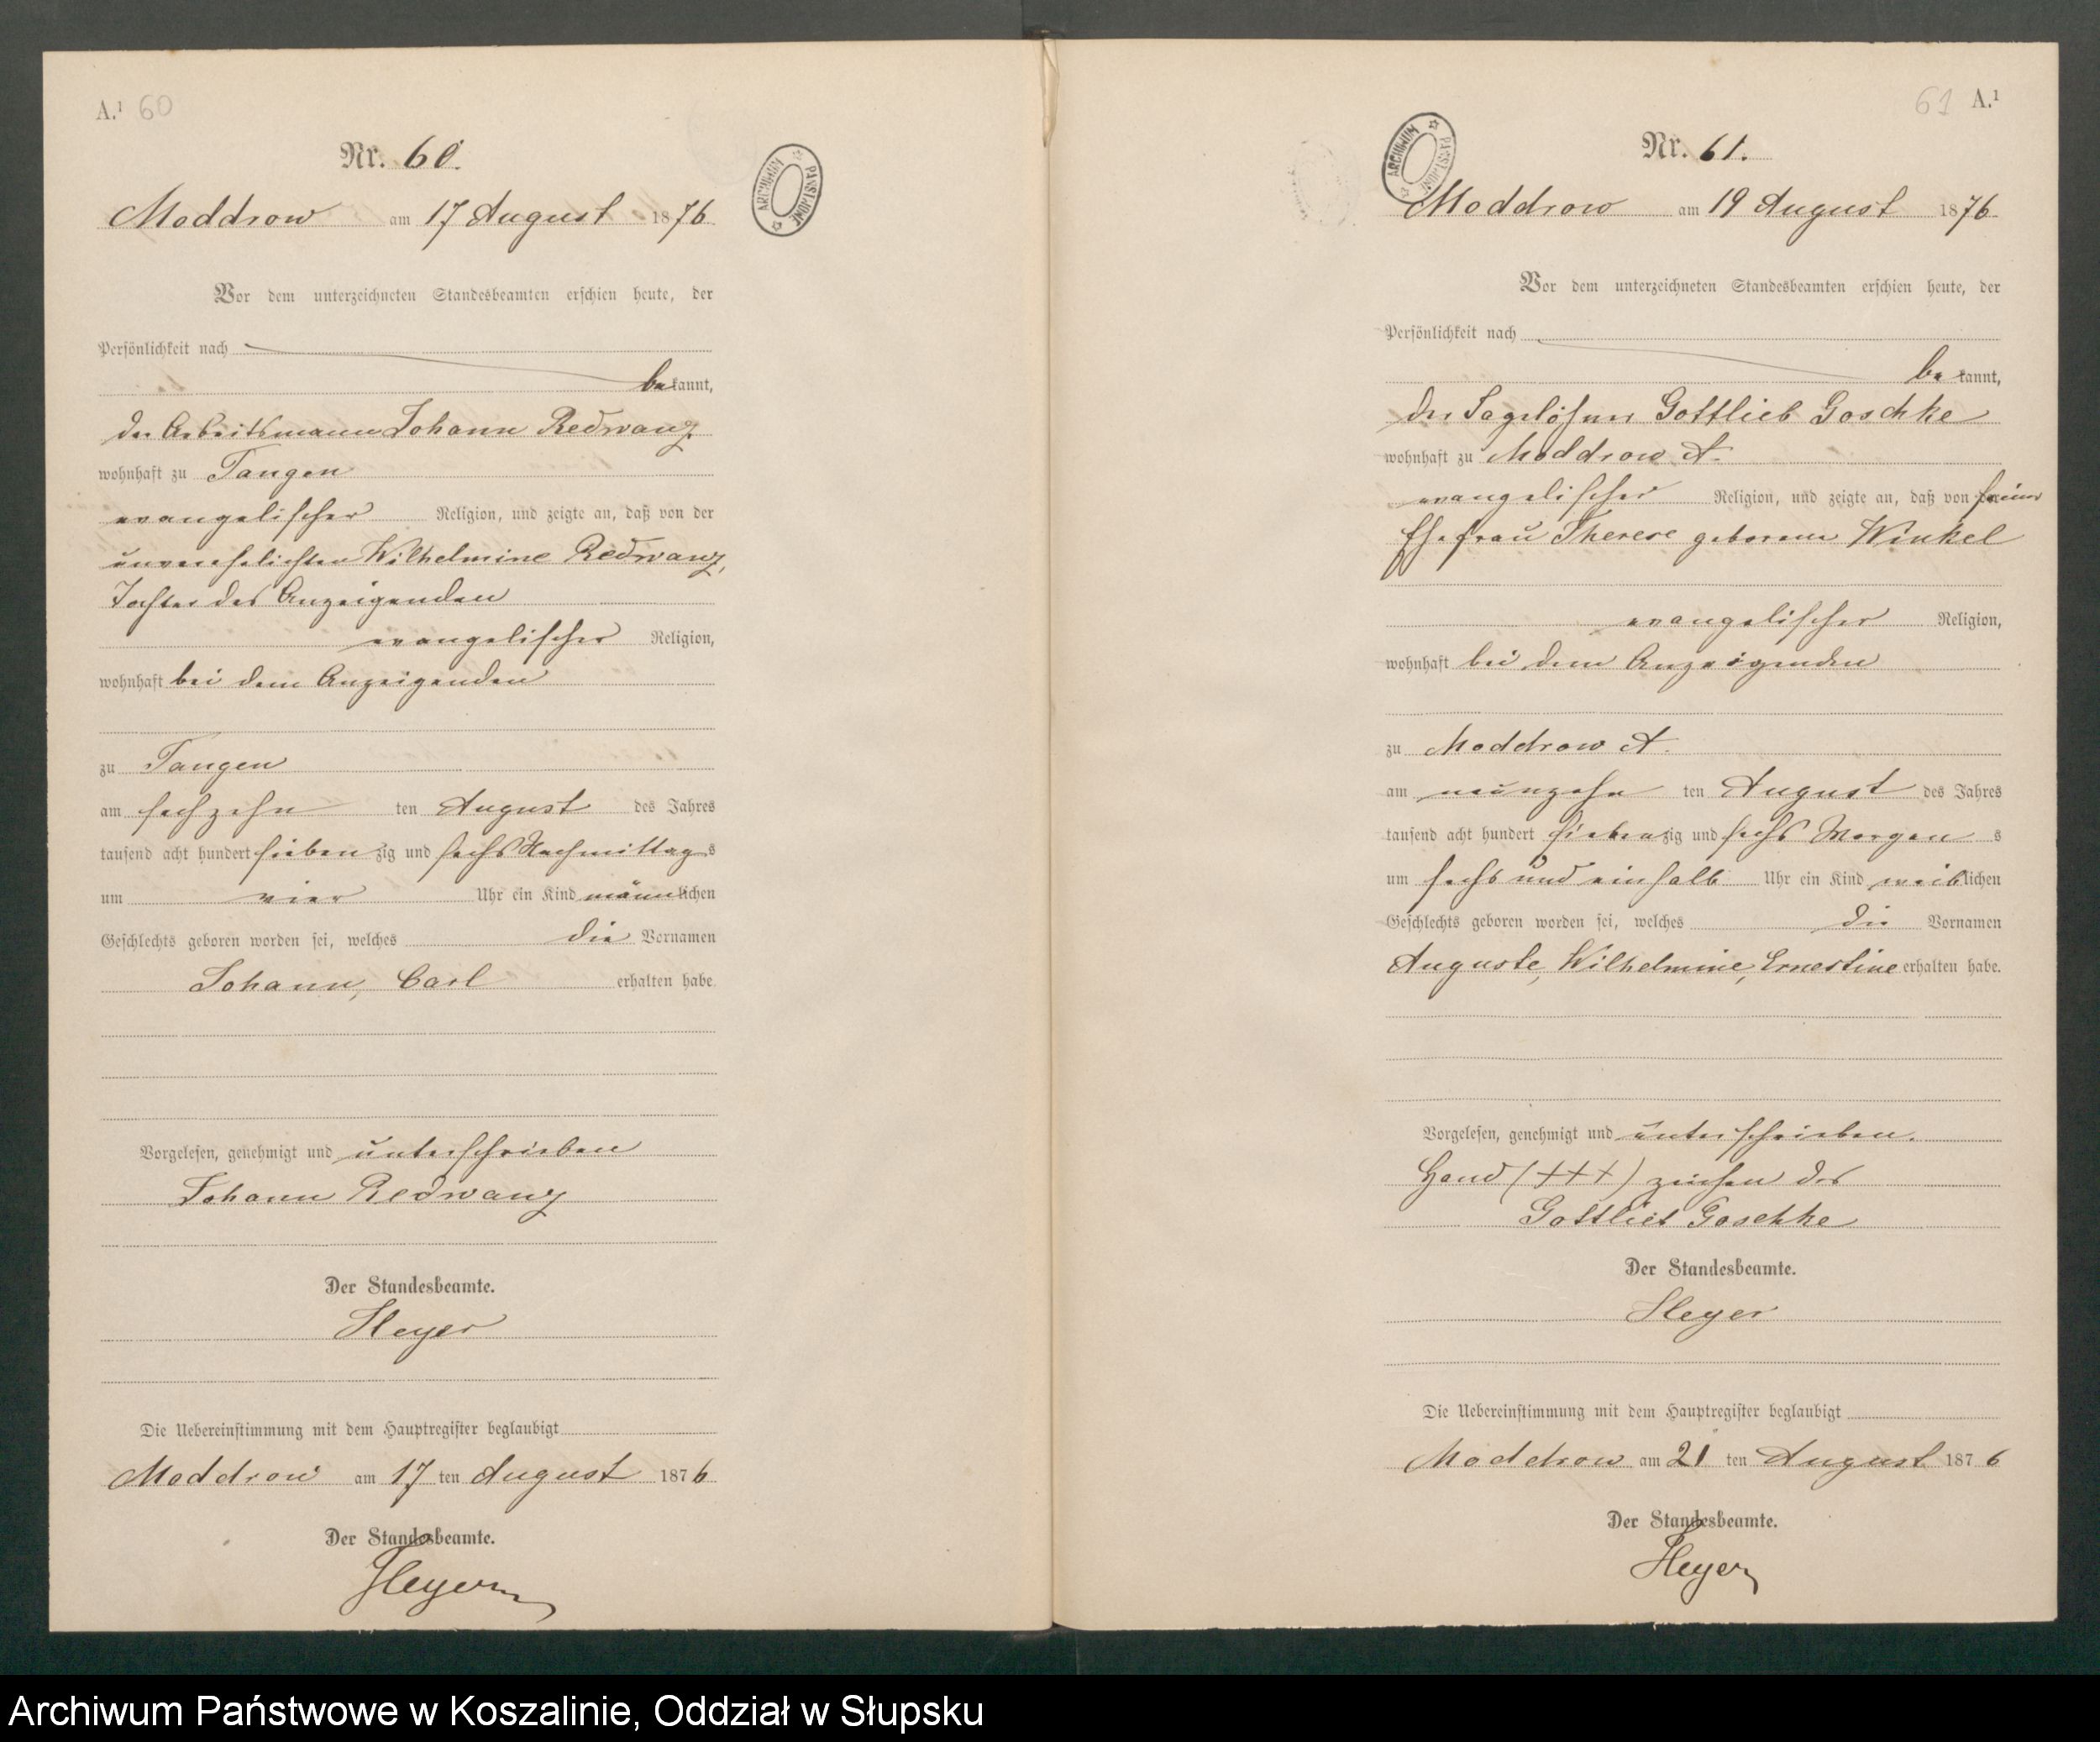 A.¹ 60
Nr. 60.
Moddrow am 17 August 1876.
ARCHIWUM PAŃSTWOWE
Vor dem unterzeichneten Standesbeamten erschien heute, der
Persönlichkeit nach
bekannt,
der Arbeitsmann Johann Redwanz
wohnhaft zu Tangen
evangelischer Religion, und zeigte an, daß von der
unverehelichten Wilhelmine Redwanz,
Tochter des Anzeigenden
evangelischer Religion,
wohnhaft bei dem Anzeigenden
zu Tangen
am sechzehn ten August des Jahres
tausend acht hundert siebenzig und sechs Nachmittags
um vier Uhr ein Kind männlichen
Geschlechts geboren worden sei, welches die Vornamen
Johann, Carl erhalten habe.
Vorgelesen, genehmigt und unterschrieben
Johann Redwanz
Der Standesbeamte.
Heyer
Die Uebereinstimmung mit dem Hauptregister beglaubigt
Moddrow am 17 ten August 1876.
Der Standesbeamte.
Heyer
61 A.¹
Nr. 61.
ARCHIWUM PAŃSTWOWE
Moddrow am 19 August 1876.
Vor dem unterzeichneten Standesbeamten erschien heute, der
Persönlichkeit nach
bekannt,
der Tagelöhner Gottlieb Goschke
wohnhaft zu Moddrow A.
evangelischer Religion, und zeigte an, daß von seiner
Ehefrau Therese geborene Winkel
evangelischer Religion,
wohnhaft bei dem Anzeigenden
zu Moddrow A.
am neunzehn ten August des Jahres
tausend acht hundert siebenzig und sechs Morgens
um sechs und einhalb Uhr ein Kind weiblichen
Geschlechts geboren worden sei, welches die Vornamen
Auguste, Wilhelmine, Ernestine erhalten habe.
Vorgelesen, genehmigt und unterschrieben.
Hand (+++) zeichen des
Gottlieb Goschke
Der Standesbeamte.
Heyer
Die Uebereinstimmung mit dem Hauptregister beglaubigt
Moddrow am 21 ten August 1876
Der Standesbeamte.
Heyer
Archiwum Państwowe w Koszalinie, Oddział w Słupsku